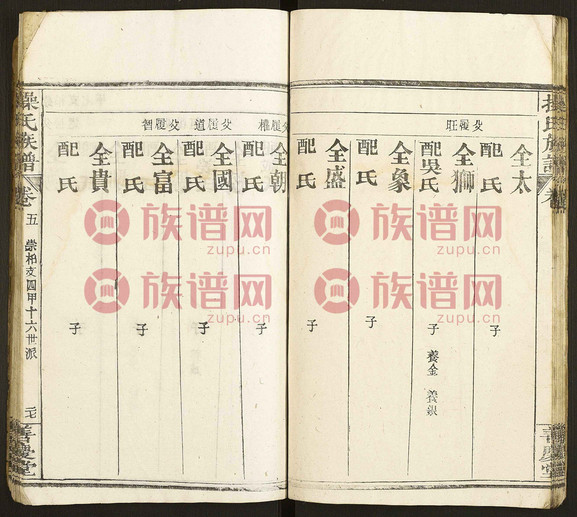 操氏族譜
善慶堂
父履旺
全太
配氏
子
全獅
配吳氏
子 養金 養銀
全象
配氏
子
全盛
配氏
子
父履權
全朝
配氏
子
父履道
全國
配氏
子
父履智
全富
配氏
子
全貴
配氏
子
操氏族譜
卷五
崇柏支四甲十六世派
二七
善慶堂
族谱网
zupu.cn
族谱网
zupu.cn
族谱网
zupu.cn
族谱网
zupu.cn